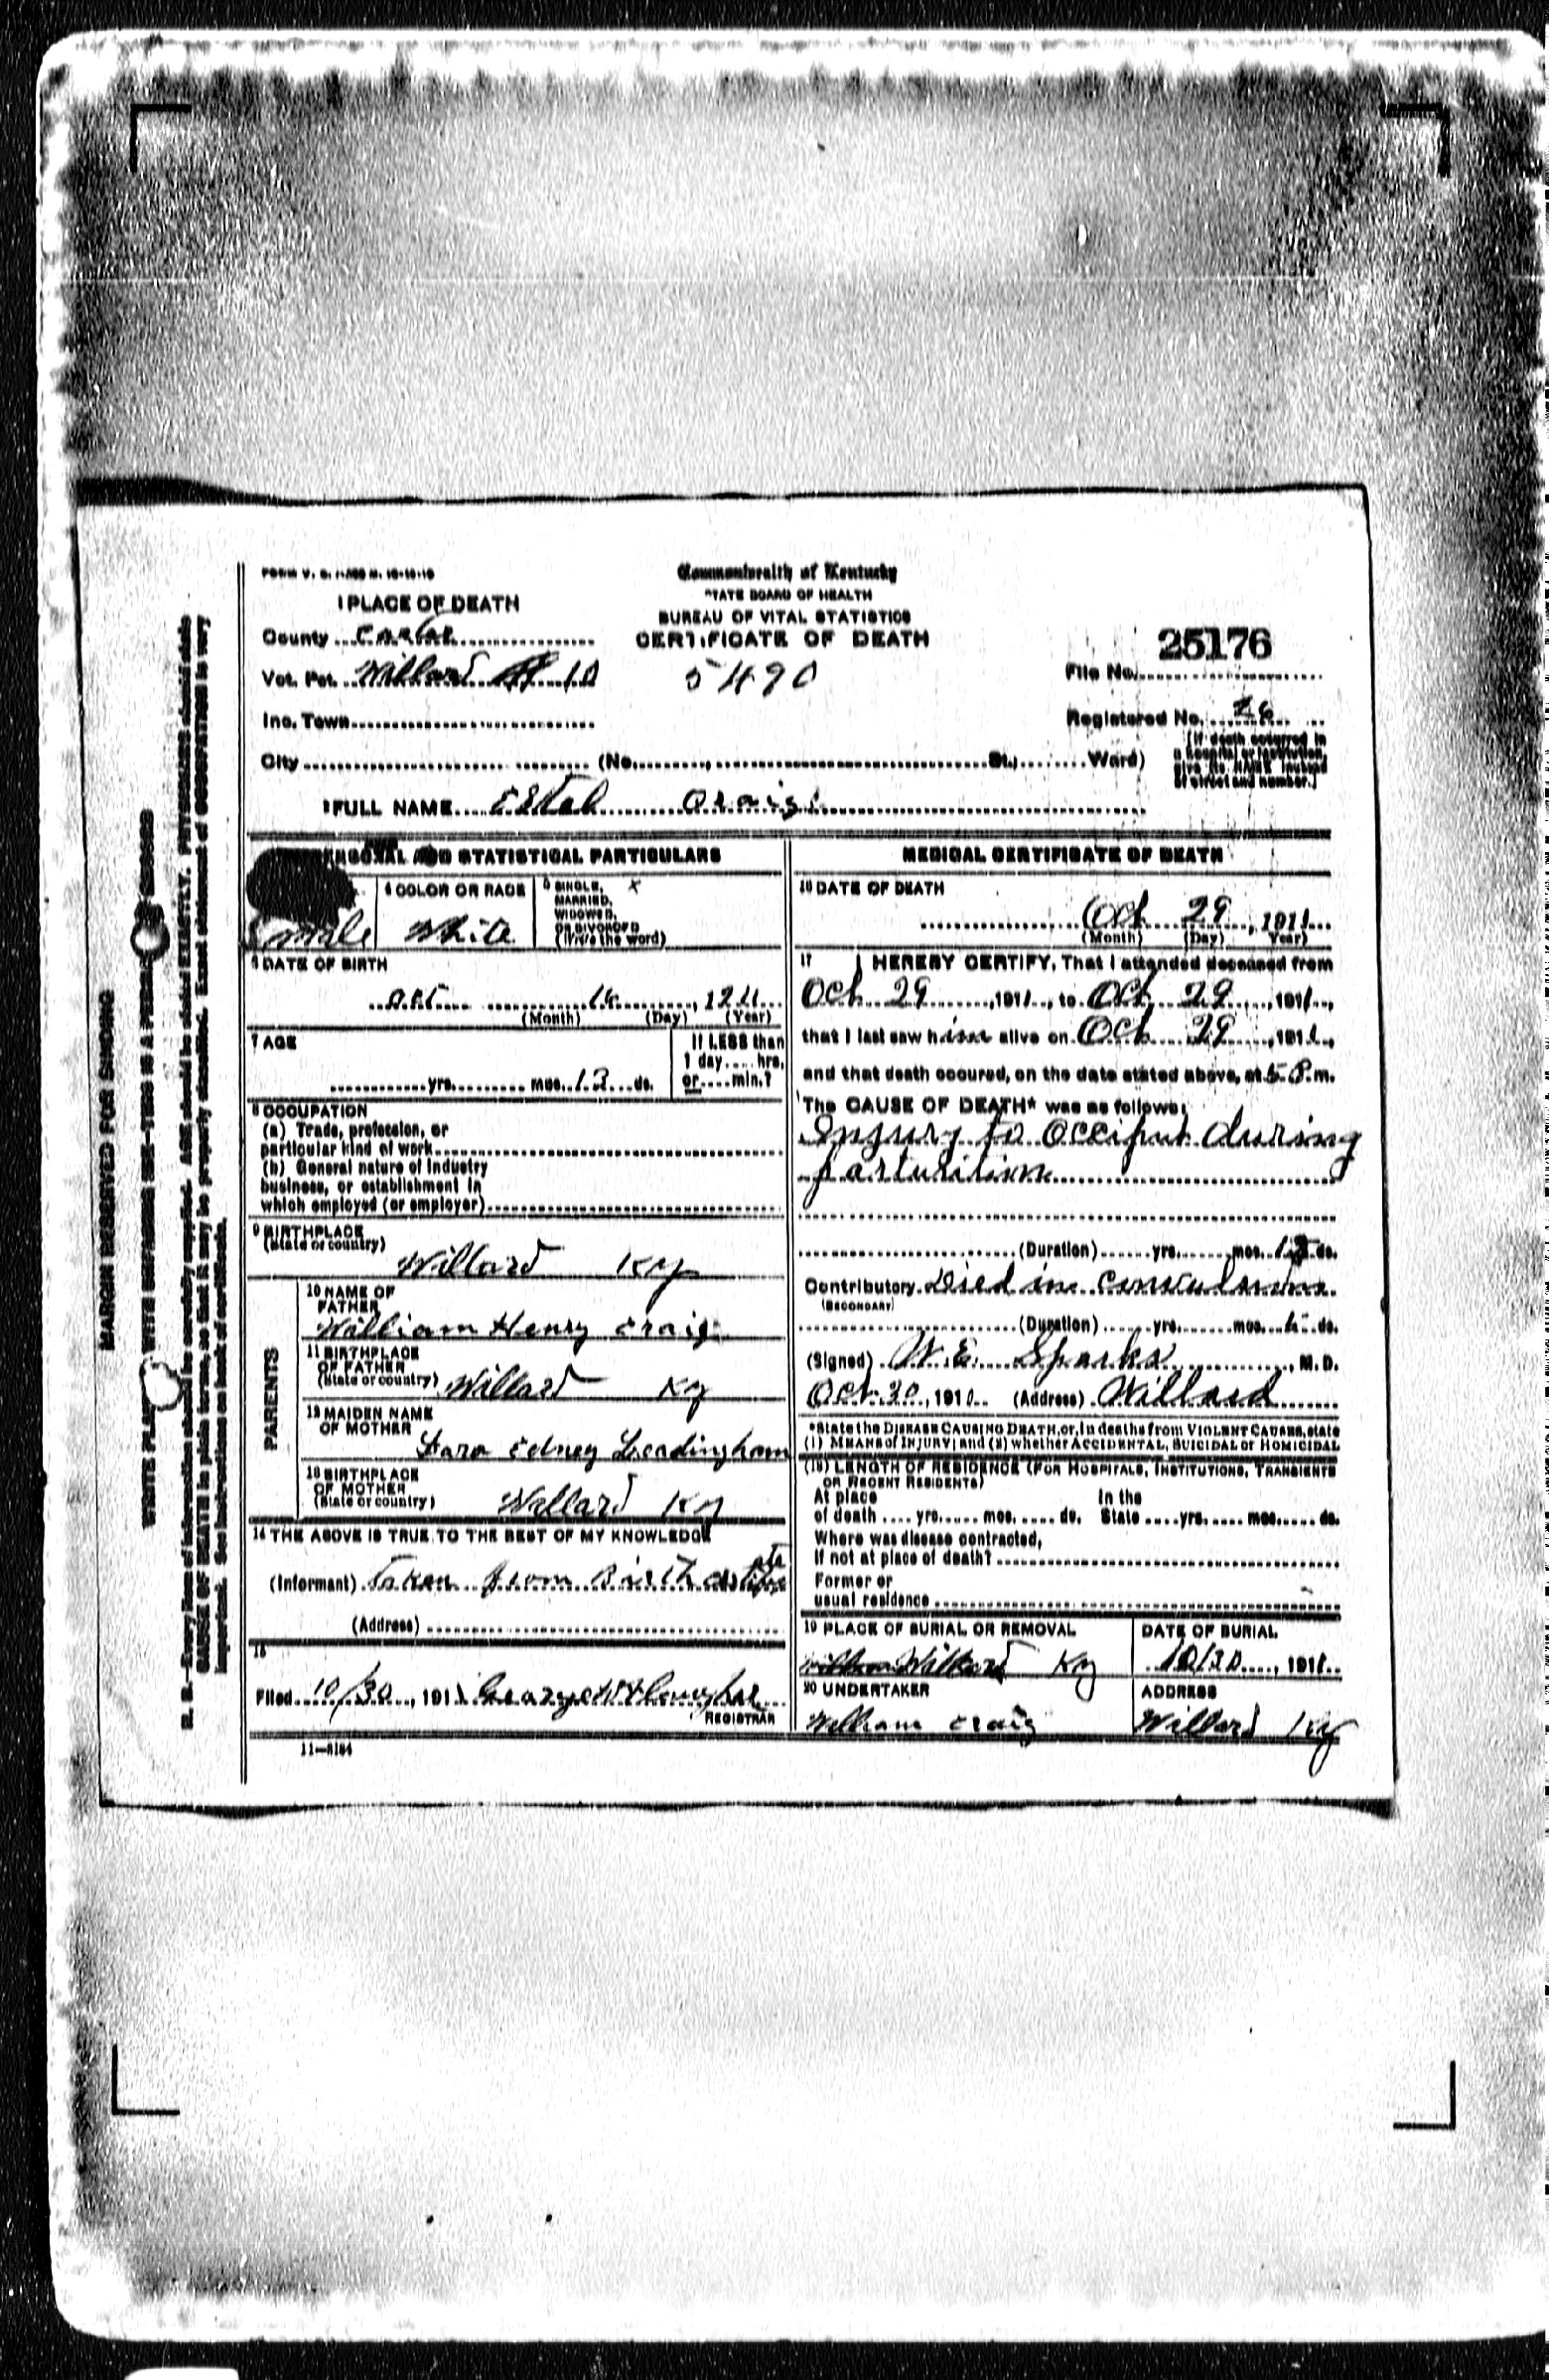 Commonwealth of Kentucky
STATE BOARD OF HEALTH
BUREAU OF VITAL STATISTICS
CERTIFICATE OF DEATH
5490
1 PLACE OF DEATH
County Carter
Vot. Pct. Willard 10
Inc. Town
City (No. St., Ward)
25176
File No.
Registered No. 26
(If death occurred in
a hospital or institution,
give its NAME instead
of street and number.)
2 FULL NAME Estel Craig
PERSONAL AND STATISTICAL PARTICULARS
male
4 COLOR OR RACE
White
5 SINGLE, X
MARRIED,
WIDOWED,
OR DIVORCED
(Write the word)
6 DATE OF BIRTH
(Month) (Day) (Year)
7 AGE
yrs. mos. 13 ds.
If LESS than
1 day hrs.
or min.?
8 OCCUPATION
(a) Trade, profession, or
particular kind of work
(b) General nature of industry
business, or establishment in
which employed (or employer)
9 BIRTHPLACE
(State or country)
Willard Ky
PARENTS
10 NAME OF
FATHER
William Henry Craig
11 BIRTHPLACE
OF FATHER
(State or country) Willard Ky
12 MAIDEN NAME
OF MOTHER
Sara Edney Leadingham
13 BIRTHPLACE
OF MOTHER
(State or country) Willard Ky
14 THE ABOVE IS TRUE TO THE BEST OF MY KNOWLEDGE
(Informant) Taken from Birth certificate
(Address)
15
Filed 10/30, 1911
REGISTRAR
11-5184
MEDICAL CERTIFICATE OF DEATH
16 DATE OF DEATH
Oct 29, 1911
(Month) (Day) Year)
17 I HEREBY CERTIFY, That I attended deceased from
Oct 29, 1911, to Oct 29, 1911,
that I last saw him alive on Oct 29, 1911,
and that death occured, on the date stated above, at 5 P.m.
The CAUSE OF DEATH* was as follows:
Injury to Occiput during
parturition
(Duration) yrs. mos. ds.
Contributory Died in convulsions
(SECONDARY)
(Duration) yrs. mos. ds.
(Signed) W. E. Sparks, M. D.
Oct 30, 191 (Address) Willard
*State the DISEASE CAUSING DEATH, or, in deaths from VIOLENT CAUSES, state
(1) MEANS of INJURY; and (2) whether ACCIDENTAL, SUICIDAL or HOMICIDAL
(18) LENGTH OF RESIDENCE (FOR HOSPITALS, INSTITUTIONS, TRANSIENTS
OR RECENT RESIDENTS)
At place In the
of death yrs. mos. ds. State yrs. mos. ds.
Where was disease contracted,
If not at place of death?
Former or
usual residence
19 PLACE OF BURIAL OR REMOVAL
Willard Ky
DATE OF BURIAL
10/30, 1911
20 UNDERTAKER
William Craig
ADDRESS
Willard Ky
MARGIN RESERVED FOR BINDING